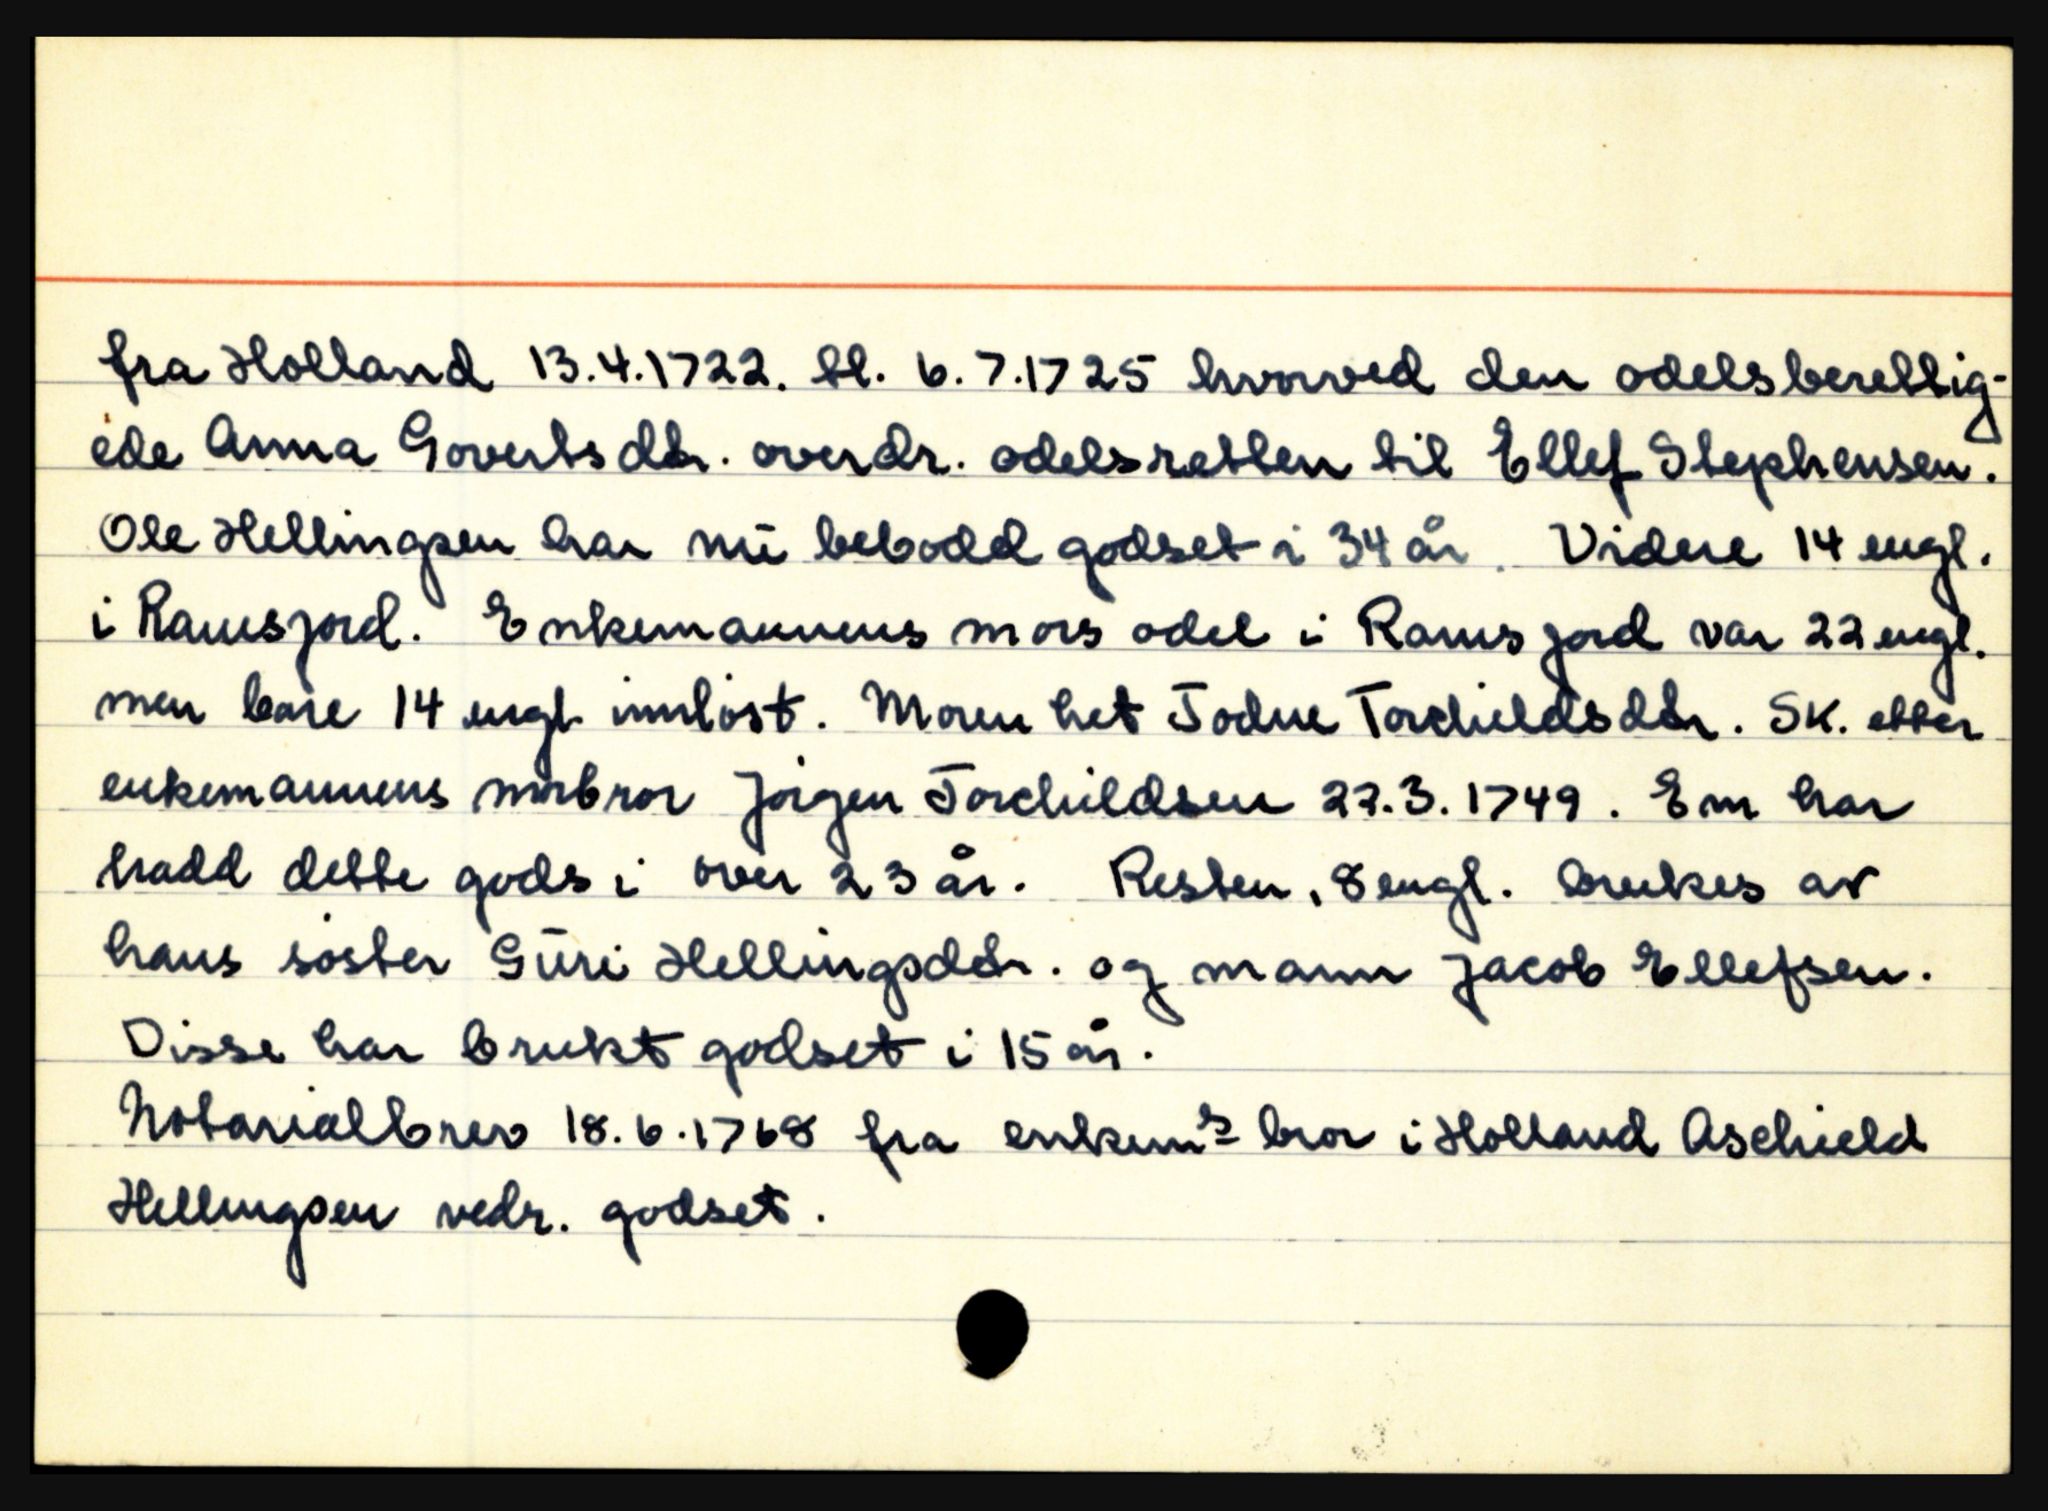 fra Holland 13.4.1722. tl. 6.7.1725 hvorved den odelsberettig-
ede Anna Govertsdtr. overdr. odelsretten til Ellef Stephensen.
Ole Hellingsen har nū bebodd godset i 34 år. Videre 14 engl.
i Ramsjord. Enkemannens mors odel i Ramsjord var 22 engl.
men bare 14 engl innløst. Moren het Todne Torchildsdtr. SK. etter
enkemannens morbror Jørgen Torchildsen 27.3.1749. Em har
hadd dette gods i over 23 år. Resten, 8 engl. brukes av
hans søster Gūri Hellingsdtr. og mann Jacob Ellefsen.
Disse har brukt godset i 15 år.
Notarialbrev 18.6.1768 fra enkem's bror i Holland Aschield
Hellingsen vedr. godset.